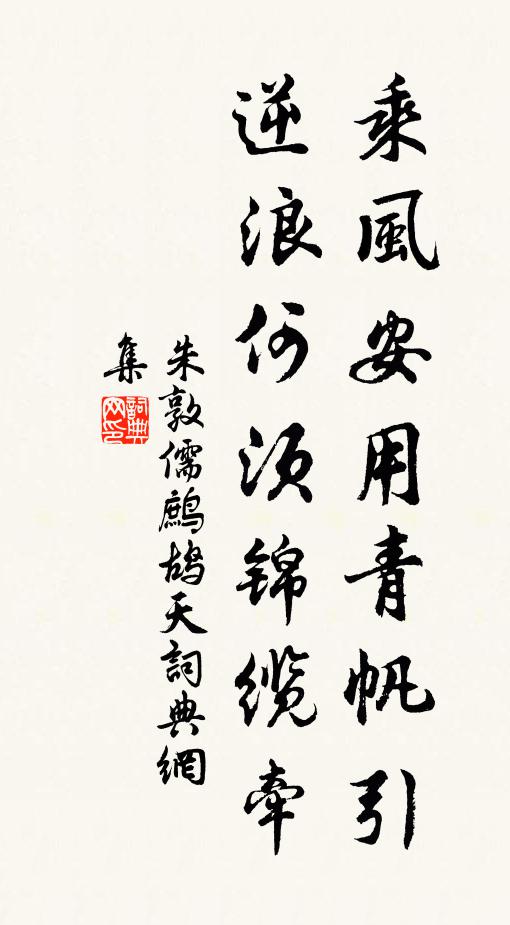 乘風安用青帆引
逆浪何須錦纜牽
朱敦儒鷓鴣天詞典網
集
詞典
网印